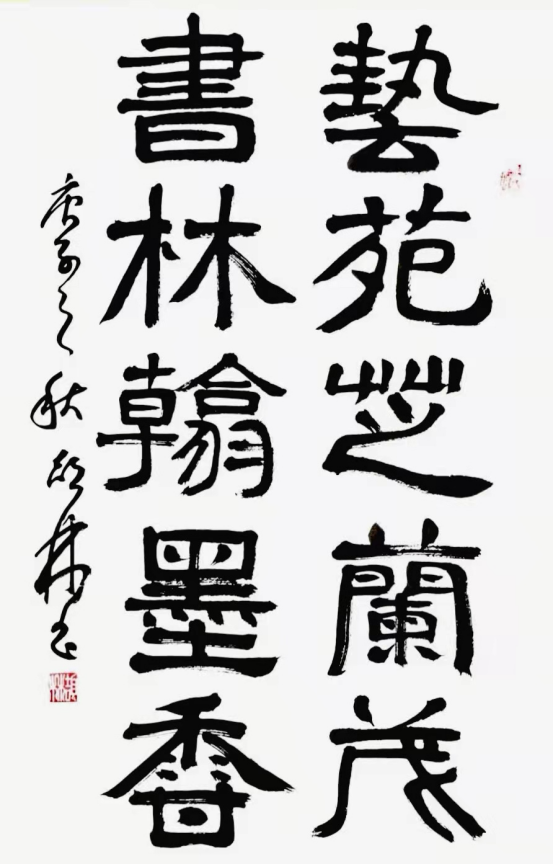 藝苑芝蘭茂
書林翰墨香
庚子之秋
書